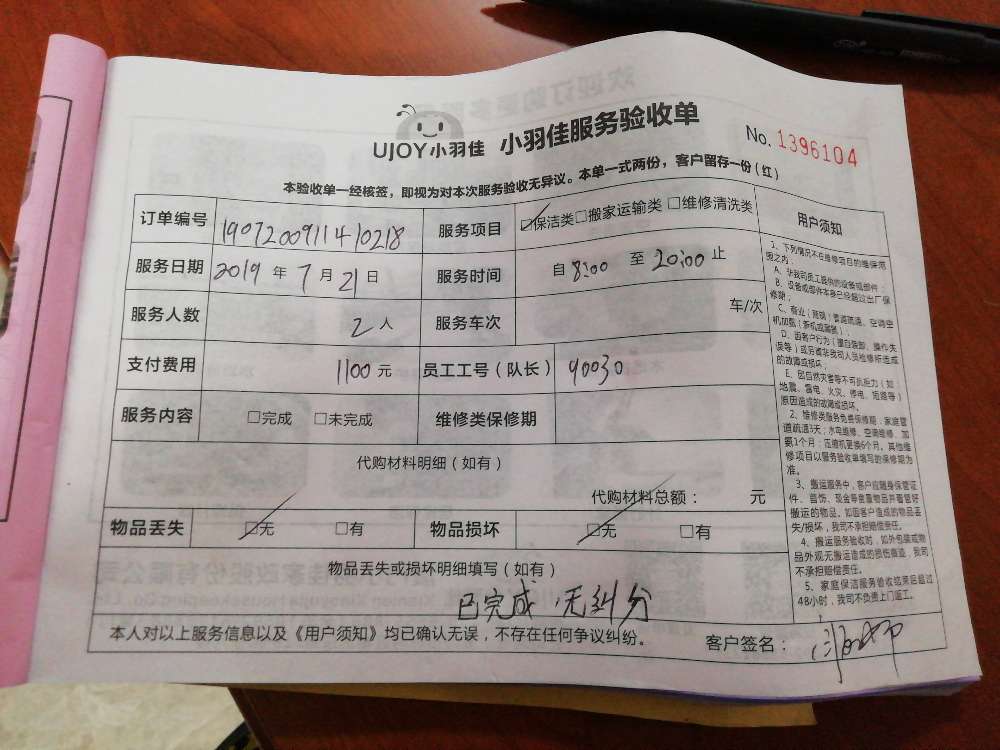 UJOY小羽佳 小羽佳服务验收单
No. 1396104
本验收单一经核签，即视为对本次服务验收无异议。本单一式两份，客户留存一份（红）
订单编号 190720091140218 服务项目 ☑保洁类□搬家运输类□维修清洗类
服务日期 2019年7月21日 服务时间 自8:00至20:00止
服务人数 2人 服务车次 车/次
支付费用 1100元 员工工号（队长） 90030
服务内容 □完成 □未完成 维修类保修期
代购材料明细（如有）
代购材料总额： 元
物品丢失 ☑无 □有 物品损坏 ☑无 □有
物品丢失或损坏明细填写（如有）
已完成.无纠纷
本人对以上服务信息以及《用户须知》均已确认无误，不存在任何争议纠纷。 客户签名：
用户须知
1、下列情况不在维修项目的维保范
围之内：
A、非我司员工提供的设备或部件；
B、设备或部件本身已经超过出厂保
修期；
C、商业（营销）管道疏通、空调空
机加氨（茶机或漏氨）；
D、因客户行为（擅自装卸、操作失
误等）或另请非我司人员检修所造成
的故障或损坏；
E、因自然灾害等不可抗拒力（如：
地震、雷电、火灾、停电、短路等）
原因造成的故障或损坏。
2、维修类服务免费保修期：家庭管
道疏通3天；水电维修、空调维修、加
氨1个月；压缩机更换6个月。其他维
修项目以服务验收单填写的保修期为
准。
3、搬运服务中，客户应随身保管证
件、首饰、现金等贵重物品并看管好
搬运的物品。如因客户造成的物品丢
失/损坏，我司不承担赔偿责任。
4、搬运服务验收时，如外包装或物
品外观无搬运造成的损伤痕迹，我司
不承担赔偿责任。
5、家庭保洁服务验收结束后超过
48小时，我司不负责上门返工。